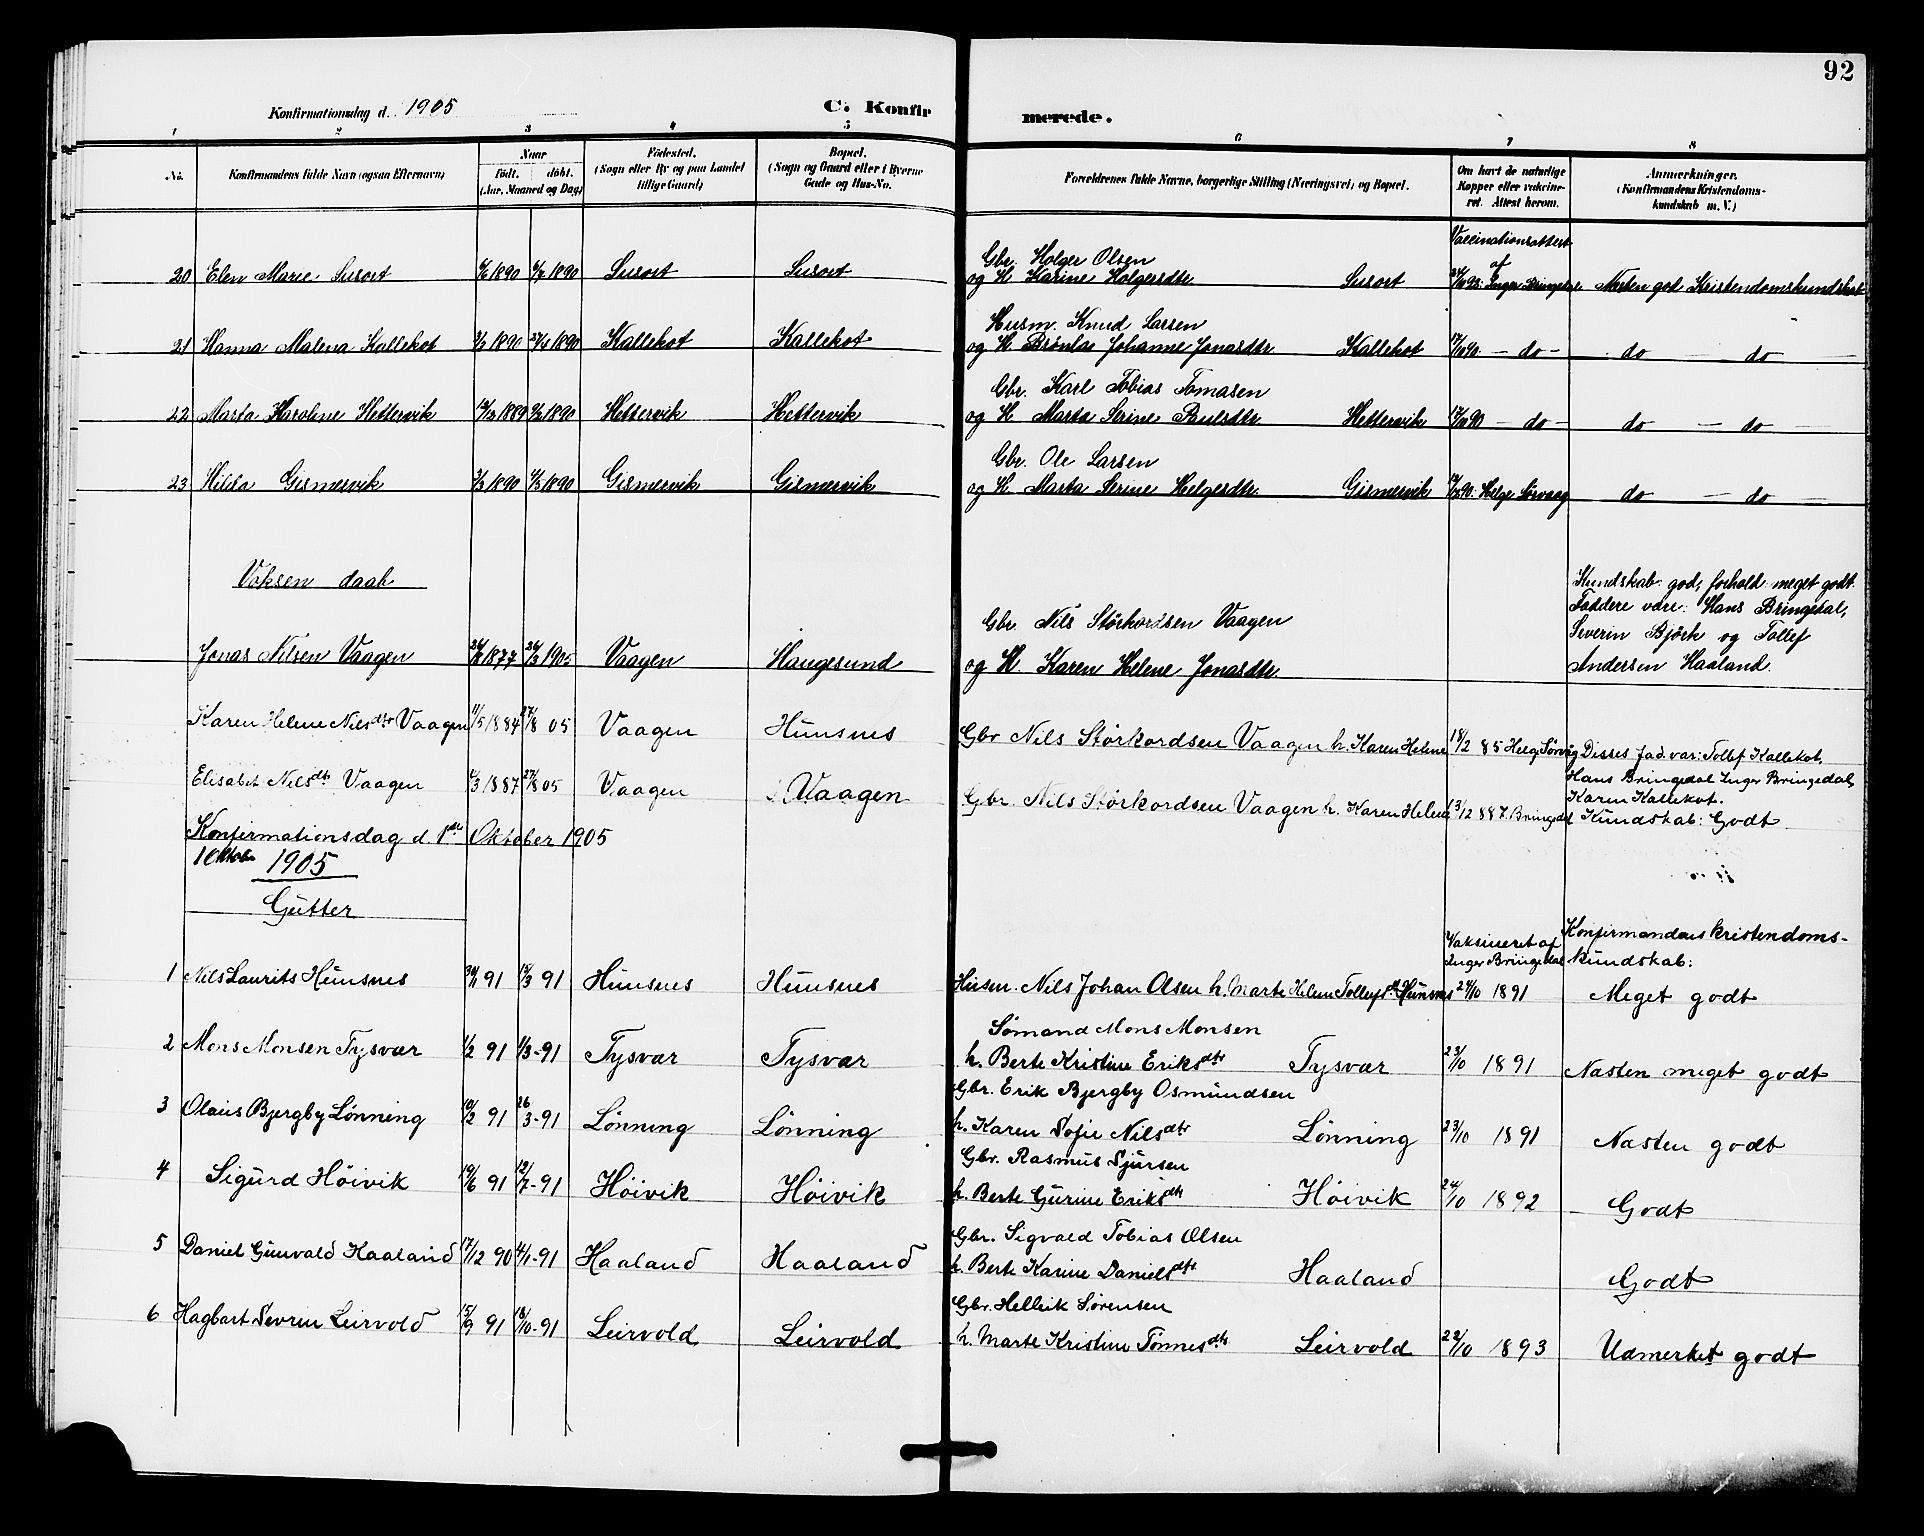 92
Konfirmationsdag d. 1905
C. Konfirmerede.
1 2 3 4 5 6 7 8
No.
Konfirmandens fulde Navn (ogsaa Efternavn)
Naar
født. døbt.
(Aar, Maaned og Dag)
Fødested.
(Sogn eller By og paa Landet
tillige Gaard)
Bopæl.
(Sogn og Gaard eller i Byerne
Gade og Hus-No.
Forældrenes fulde Navne, borgerlige Stilling (Næringsvei) og Bopæl.
Om havt de naturlige
Kopper eller vakcine-
ret. Attest herom.
Anmærkninger.
(Konfirmandens Kristendoms-
kundskab m. V.)
Vaccinationsattest
af
Gbr. Holger Olsen
20 Elen Marie Susort 1890 1890 Susort Susort og H. Karine Holgersdtr Susort Inger Bringedal Næsten god Kristendomskundskab
Husm. Knud Larsen
21 Hanna Malena Kallekot 1890 1890 Kallekot Kallekot og H. Johanne Jonasdtr Kallekot 17/10 90 - do - do - do -
Gbr. Karl Tobias Tomasen
22 Marta Karoline Hettervik 1889 1890 Hettervik Hettervik og H. Marta Serine Paulsdtr Hettervik 17/10 90 - do - do - do -
Gbr. Ole Larsen
23 Hilda Gismervik 1890 1890 Gismervik Gismervik og H. Marta Serine Helgesdtr. Gismervik 90: Helge Sørvaag do - do -
Voksen daab
Kundskab: god, forhold: meget godt.
Faddere vare: Hans Bringedal,
Severin Björk og Tollef
Andersen Haaland.
Gbr. Nils Störkordsen Vaagen
Jonas Nilsen Vaagen 1877 1905 Vaagen Haugesund og H. Karen Helene Jonasdtr.
Karen Helene Nilsdtr Vaagen 11/5 1884 27/8 05 Vaagen Hunsnes Gbr Nils Störkordsen Vaagen h. Karen Helene 18/2 85 Helge Sørvåg Disses fad. var: Tollef Kallekot,
Hans Bringedal Inger Bringedal,
Karen Kallekot.
Elisabet Nilsdtr Vaagen /3 1887 27/8 05 Vaagen Vaagen Gbr. Nils Störkordsen Vaagen h. Karen Helene 13/12 887. Bringedal Kundskab: Godt
Konfirmationsdag d. 1ste Oktober 1905
1 Oktober 1905
Gutter
Vaksineret af
Inger Bringedal
Konfirmandens kristendoms-
kundskab:
1 Nils Laurits Hunsnes 91 15/3 91 Hunsnes Hunsnes Husm. Nils Johan Olsen h. Marte Helene Tollefsdt Hunsnes 24/10 1891 Meget godt
Sømand Mons Monsen
2 Mons Monsen Tysvær 1/2 91 1/3-91 Tysvær Tysvær h. Berte Kristine Eriksdtr Tysvær 23/10 1891 Næsten meget godt
Gbr. Erik Bjergby Osmundsen
3 Olaus Bjergby Lönning 10/2 91 26/3-91 Lönning Lönning h. Karen Sofie Nilsdtr Lönning 23/10 1891 Næsten godt
Gbr. Rasmus Sjursen
4 Sigurd Höivik 19/6 91 12/7-91 Höivik Höivik h. Berte Gurine Eriksdtr Höivik 24/10 1892 Godt
Gbr. Sigvald Tobias Olsen
5 Daniel Gunvald Haaland 17/12 90 4/1-91 Haaland Haaland h. Berte Karine Danielsdtr Haaland Godt
Gbr. Hellik Sørensen
6 Hagbart Sevrin Leirvold 15/9 91 18/10-91 Leirvold Leirvold h. Marte Kristine Tønnesdtr Leirvold 22/10 1893 Udmerket godt